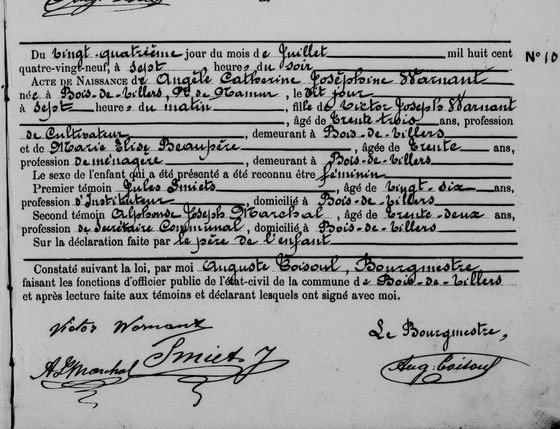 Du vingt-quatrième jour du mois de Juillet mil huit cent
quatre-vingt-neuf, à sept heures du soir
N° 10
ACTE DE NAISSANCE de Angèle Catherine Joséphine Warnant
née à Bois-de-Villers, Pce de Namur, le dit jour
à sept heures du matin, fille de Victor Joseph Warnant
, âgé de trente-trois ans, profession
de Cultivateur, demeurant à Bois-de-Villers
et de Marie Elise Beaupère, âgée de trente ans,
profession de ménagère, demeurant à Bois-de-Villers
Le sexe de l'enfant qui a été présenté a été reconnu être féminin
Premier témoin Jules Smiets, âgé de vingt-six ans,
profession d'Instituteur, domicilié à Bois-de-Villers
Second témoin Alphonse Joseph Marchal, âgé de trente-deux ans,
profession de Secrétaire Communal, domicilié à Bois-de-Villers
Sur la déclaration faite par le père de l'enfant
Constaté suivant la loi, par moi Auguste Toisoul, Bourgmestre
faisant les fonctions d'officier public de l'état-civil de la commune de Bois-de-Villers
et après lecture faite aux témoins et déclarant lesquels ont signé avec moi.
Victor Warnant
Le Bourgmestre,
A J Marchal
Smiets J
Aug. Toisoul